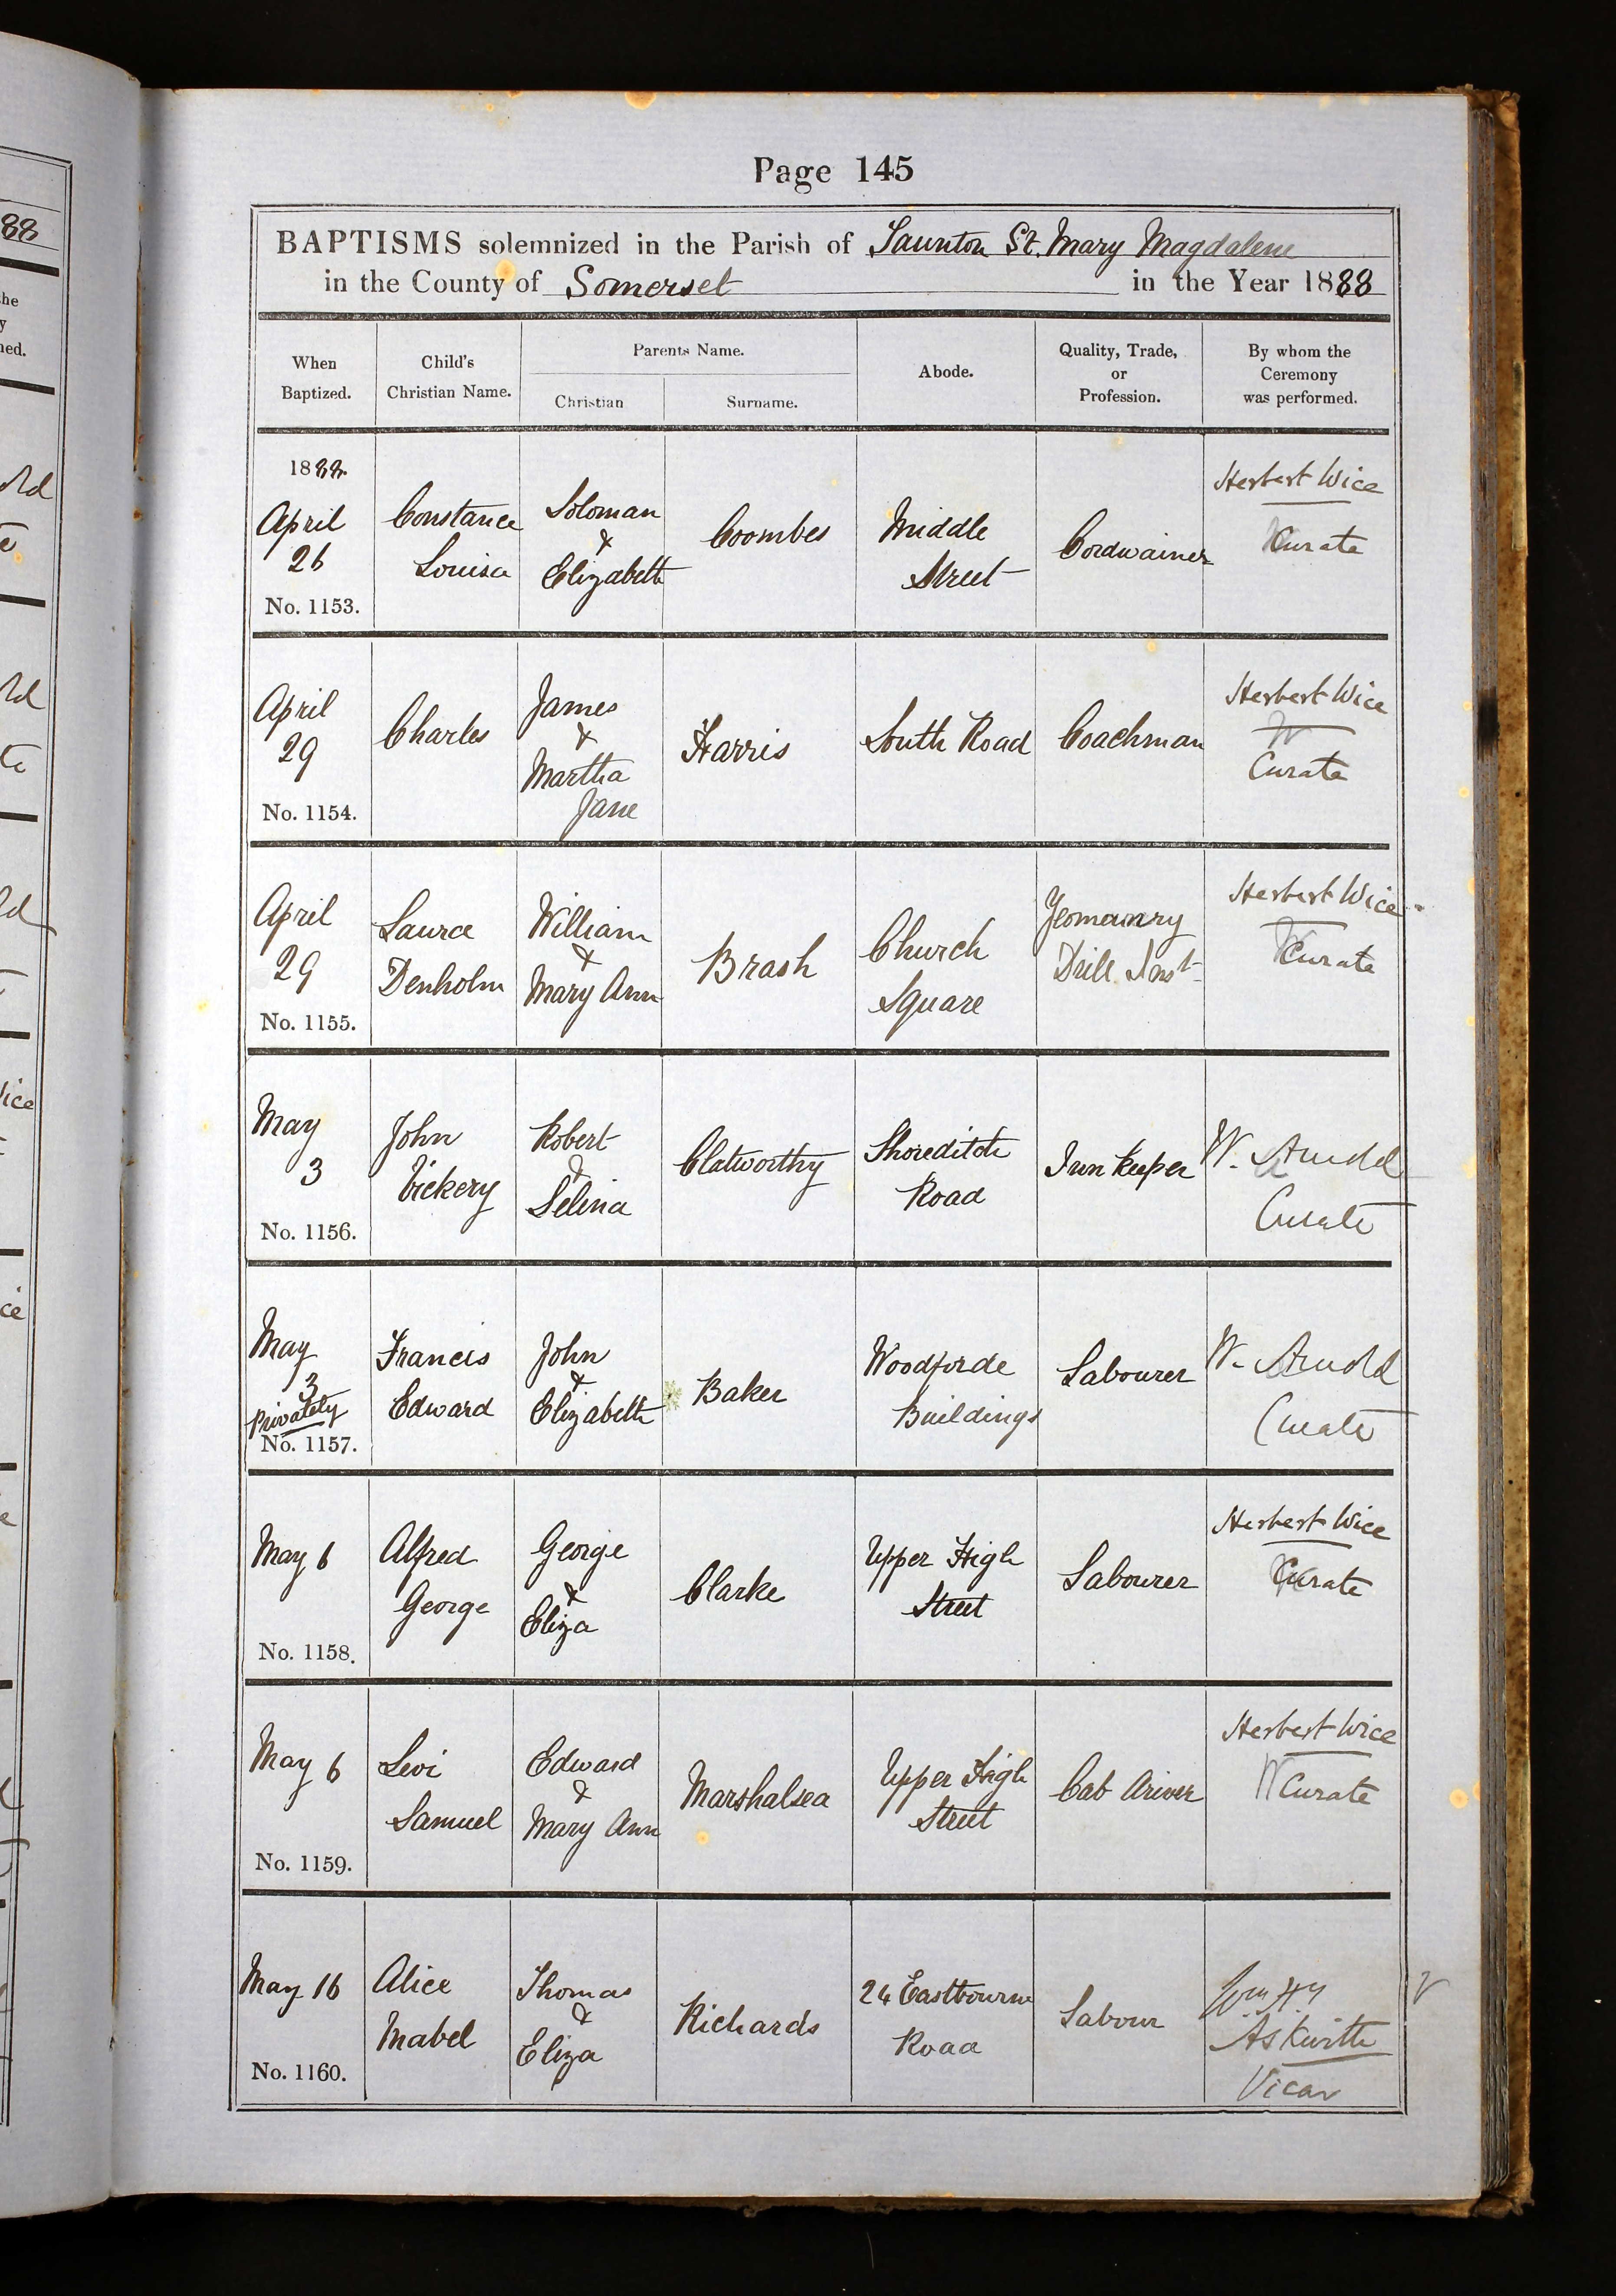 Page 145
BAPTISMS solemnized in the Parish of Taunton St. Mary Magdalene
in the County of Somerset in the Year 1888
When Baptized.
Child's Christian Name.
Parents Name.
Christian
Surname.
Abode.
Quality, Trade, or Profession.
By whom the Ceremony was performed.
1888.
April
26
No. 1153.
Constance
Louisa
Soloman
&
Elizabeth
Coombes
Middle
Street
Cordwainer
Herbert Wice
Curate
April
29
No. 1154.
Charles
James
&
Martha
Jane
Harris
South Road
Coachman
Herbert Wice
Curate
April
29
No. 1155.
Laura
Denholm
William
&
Mary Ann
Brash
Church
Square
Yeomanry
Drill Inst
Herbert Wice
Curate
May
3
No. 1156.
John
Vickery
Robert
&
Selina
Clatworthy
Shoreditch
Road
Inn Keeper
W. Arnold
Curate
May
3
Privately
No. 1157.
Francis
Edward
John
&
Elizabeth
Baker
Woodforde
Buildings
Labourer
W. Arnold
Curate
May 6
No. 1158.
Alfred
George
George
&
Eliza
Clarke
Upper High
Street
Labourer
Herbert Wice
Curate
May 6
No. 1159.
Levi
Samuel
Edward
&
Mary Ann
Marshalsea
Upper High
Street
Cab driver
Herbert Wice
Curate
May 16
No. 1160.
Alice
Mabel
Thomas
&
Eliza
Richards
24 Eastbourne
Road
Labour
Wm. Hy
Askwith
Vicar